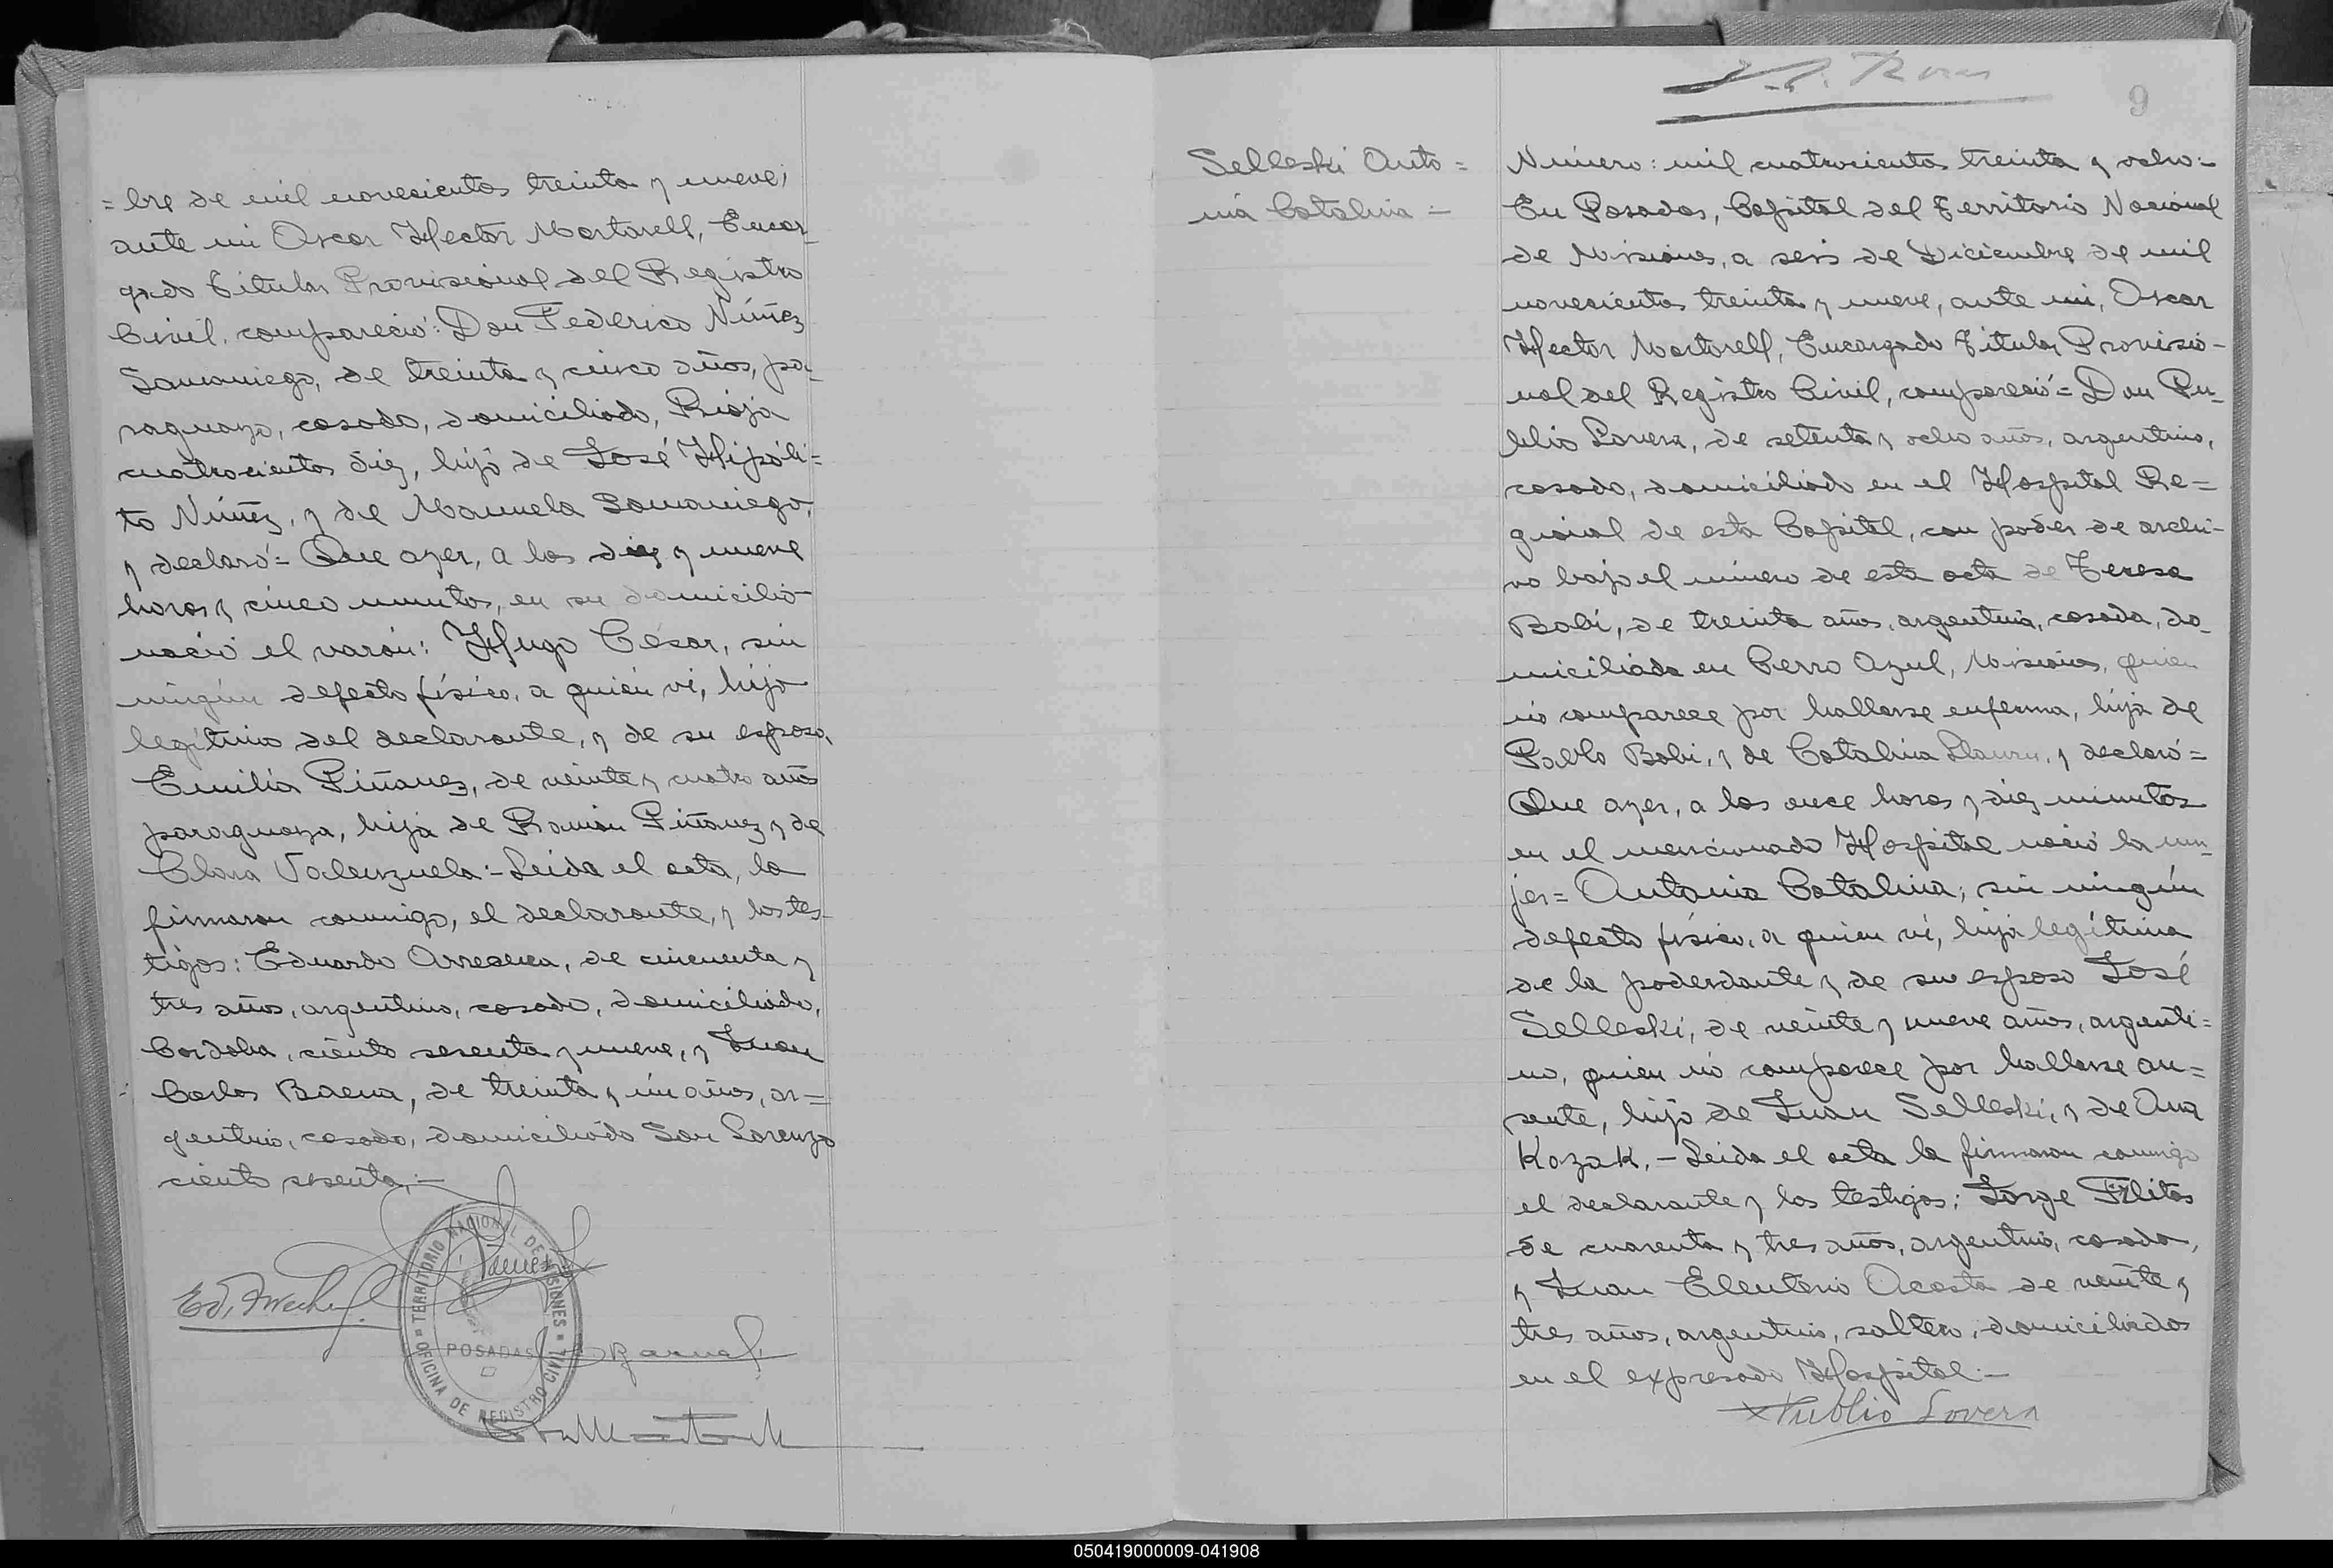 =bre de mil novecientos treinta y nueve,
ante mi Oscar Hector Martorell, Encar-
gado Titular Provisional del Registro
Civil, compareció: Don Federico Núñez
Samaniego, de treinta y cinco años, pa-
raguayo, casado, domiciliado, Rioja
cuatrocientos diez, hijo de José Hipóli=
to Núñez, y de Manuela Samaniego,
y declaró= Que ayer, a las diez y nueve
horas y cinco minutos, en su domicilio
nació el varón: Hugo César, sin
ningún defecto físico, a quien ví, hijo
legítimo del declarante, y de su esposa,
Emilia Piñanez, de veinte y cuatro años
paraguaya, hija de Ramón Piñanez y de
Clara Valenzuela:- Leida el acta, la
firmaron conmigo, el declarante, y los tes-
tigos: Eduardo de cincuenta y
tres años, argentino, casado, domiciliado,
Cordoba, ciento sesenta y nueve, y Juan
Carlos Baena, de treinta y un años, ar=
gentino, casado, domiciliado San Lorenzo
ciento sesenta,:-
TERRITORIO NACIONAL DE MISIONES
POSADAS
OFICINA DE REGISTRO CIVIL
9
Selleski Anto=
nia Catalina=
Número: mil cuatrocientos treinta y ocho:-
En Posadas, Capital del Territorio Nacional
de Misiones, a seis de Diciembre de mil
novecientos treinta y nueve, ante mi, Oscar
Hector Martorell, Encargado Titular Provisio-
nal del Registro Civil, compareció= Don Pu-
blio Lovera, de setenta y ocho años, argentino,
casado, domiciliado en el Hospital Re=
gional de esta Capital, con poder de archi-
vo bajo el número de esta acta de Teresa
Bobi, de treinta años, argentina, casada, do-
miciliada en Cerro Azul, Misiones, quien
no comparece por hallarse enferma, hija de
Pablo Bobi, y de Catalina y declaró=
Que ayer, a las once horas y diez minutos
en el mencionado Hospital nació la mu-
jer= Antonia Catalina, sin ningún
defecto físico, a quien ví, hija legítima
de la poderdante y de su esposo José
Selleski, de veinte y nueve años, argenti=
no, quien no comparece por hallarse au=
sente, hijo de Juan Selleski, y de Ana
Kozak.- Leida el acta la firmaron conmigo
el declarante y los testigos: Jorge
de cuarenta y tres años, argentino, casado,
y Juan Eleuterio Acosta de veinte y
tres años, argentino, soltero, domiciliados
en el expresado Hospital:-
Publio Lovera
050419000009-041908